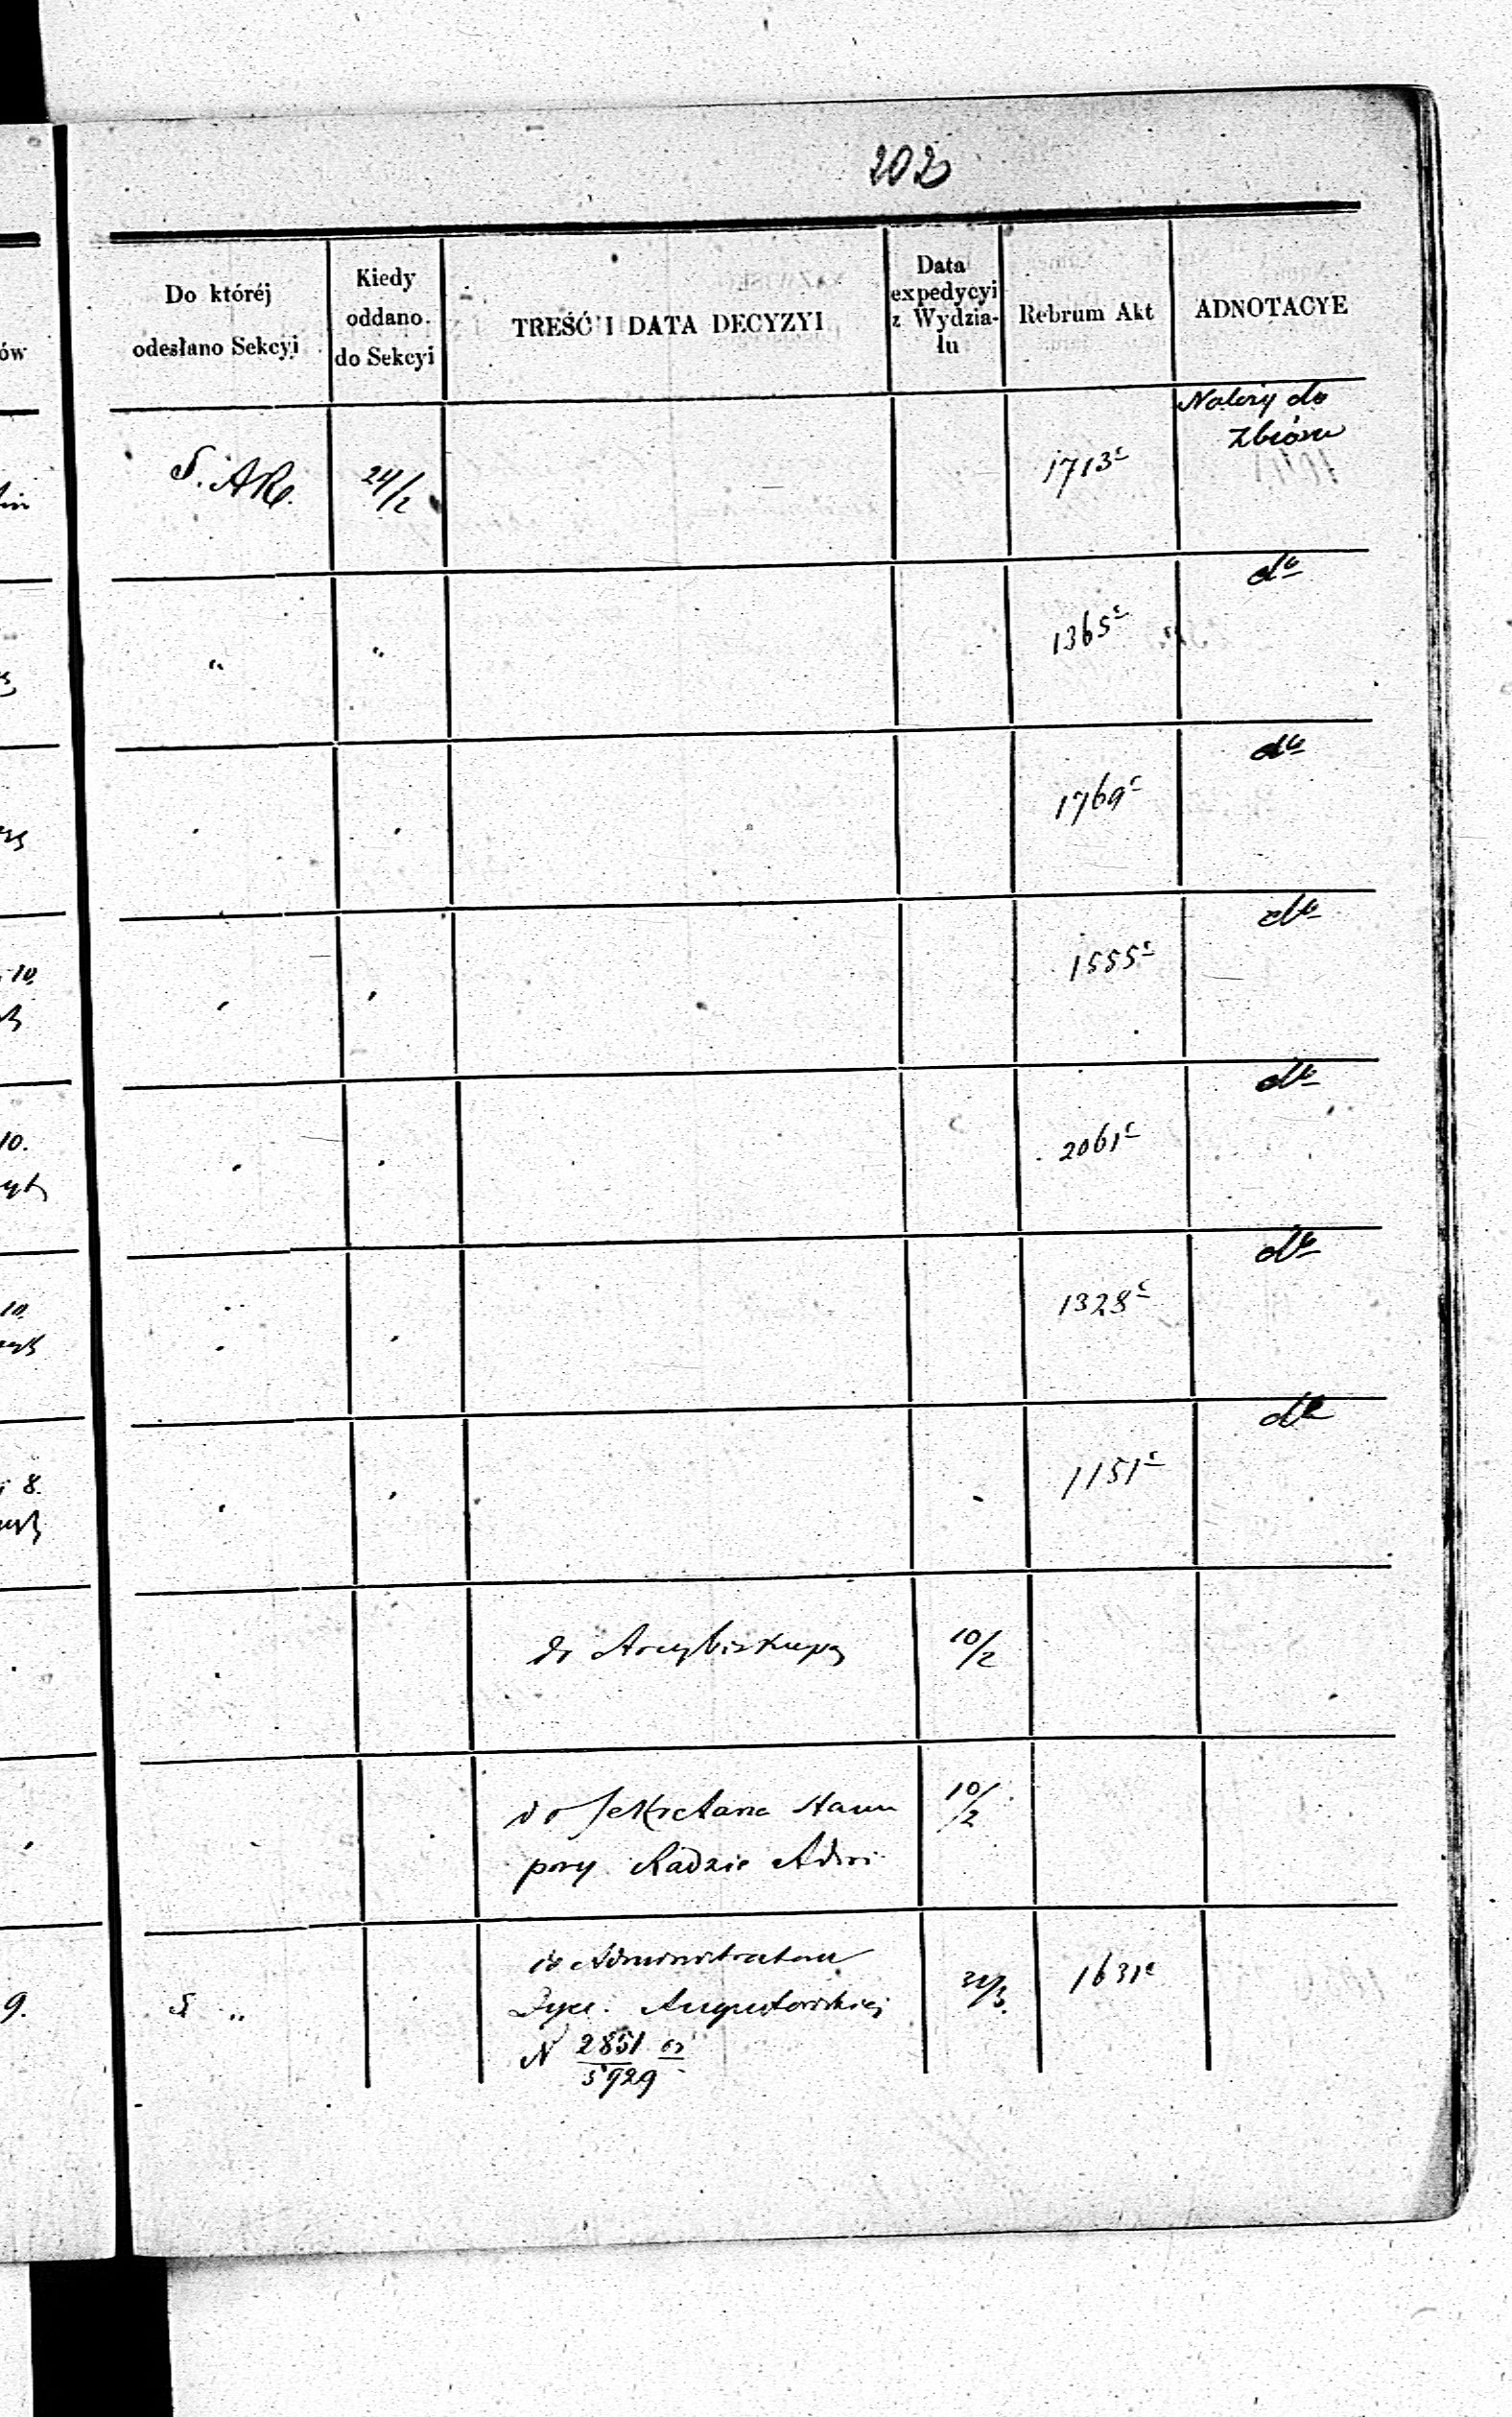 202
Do któréj
odesłano Sekcyi
Kiedy
oddano
do Sekcyi
TREŚĆ I DATA DECYZYI
Data
expedycyi
z Wydzia-
łu
Rebrum Akt
ADNOTACYE
ów
S. AR. 24/2 1713c Należy do
Zbioru
" " 1365c do
1769c do
10. 1555c do
10. 2061c do
10. 1328c do
8. 1151c do
do Arcybiskupa 10/2
do Sekretarza Stanu 10/2
przy Radzie Admi
9. S " do Administratora 31/3. 1631c
Dyec. Augustowskiej
N 2851/5929